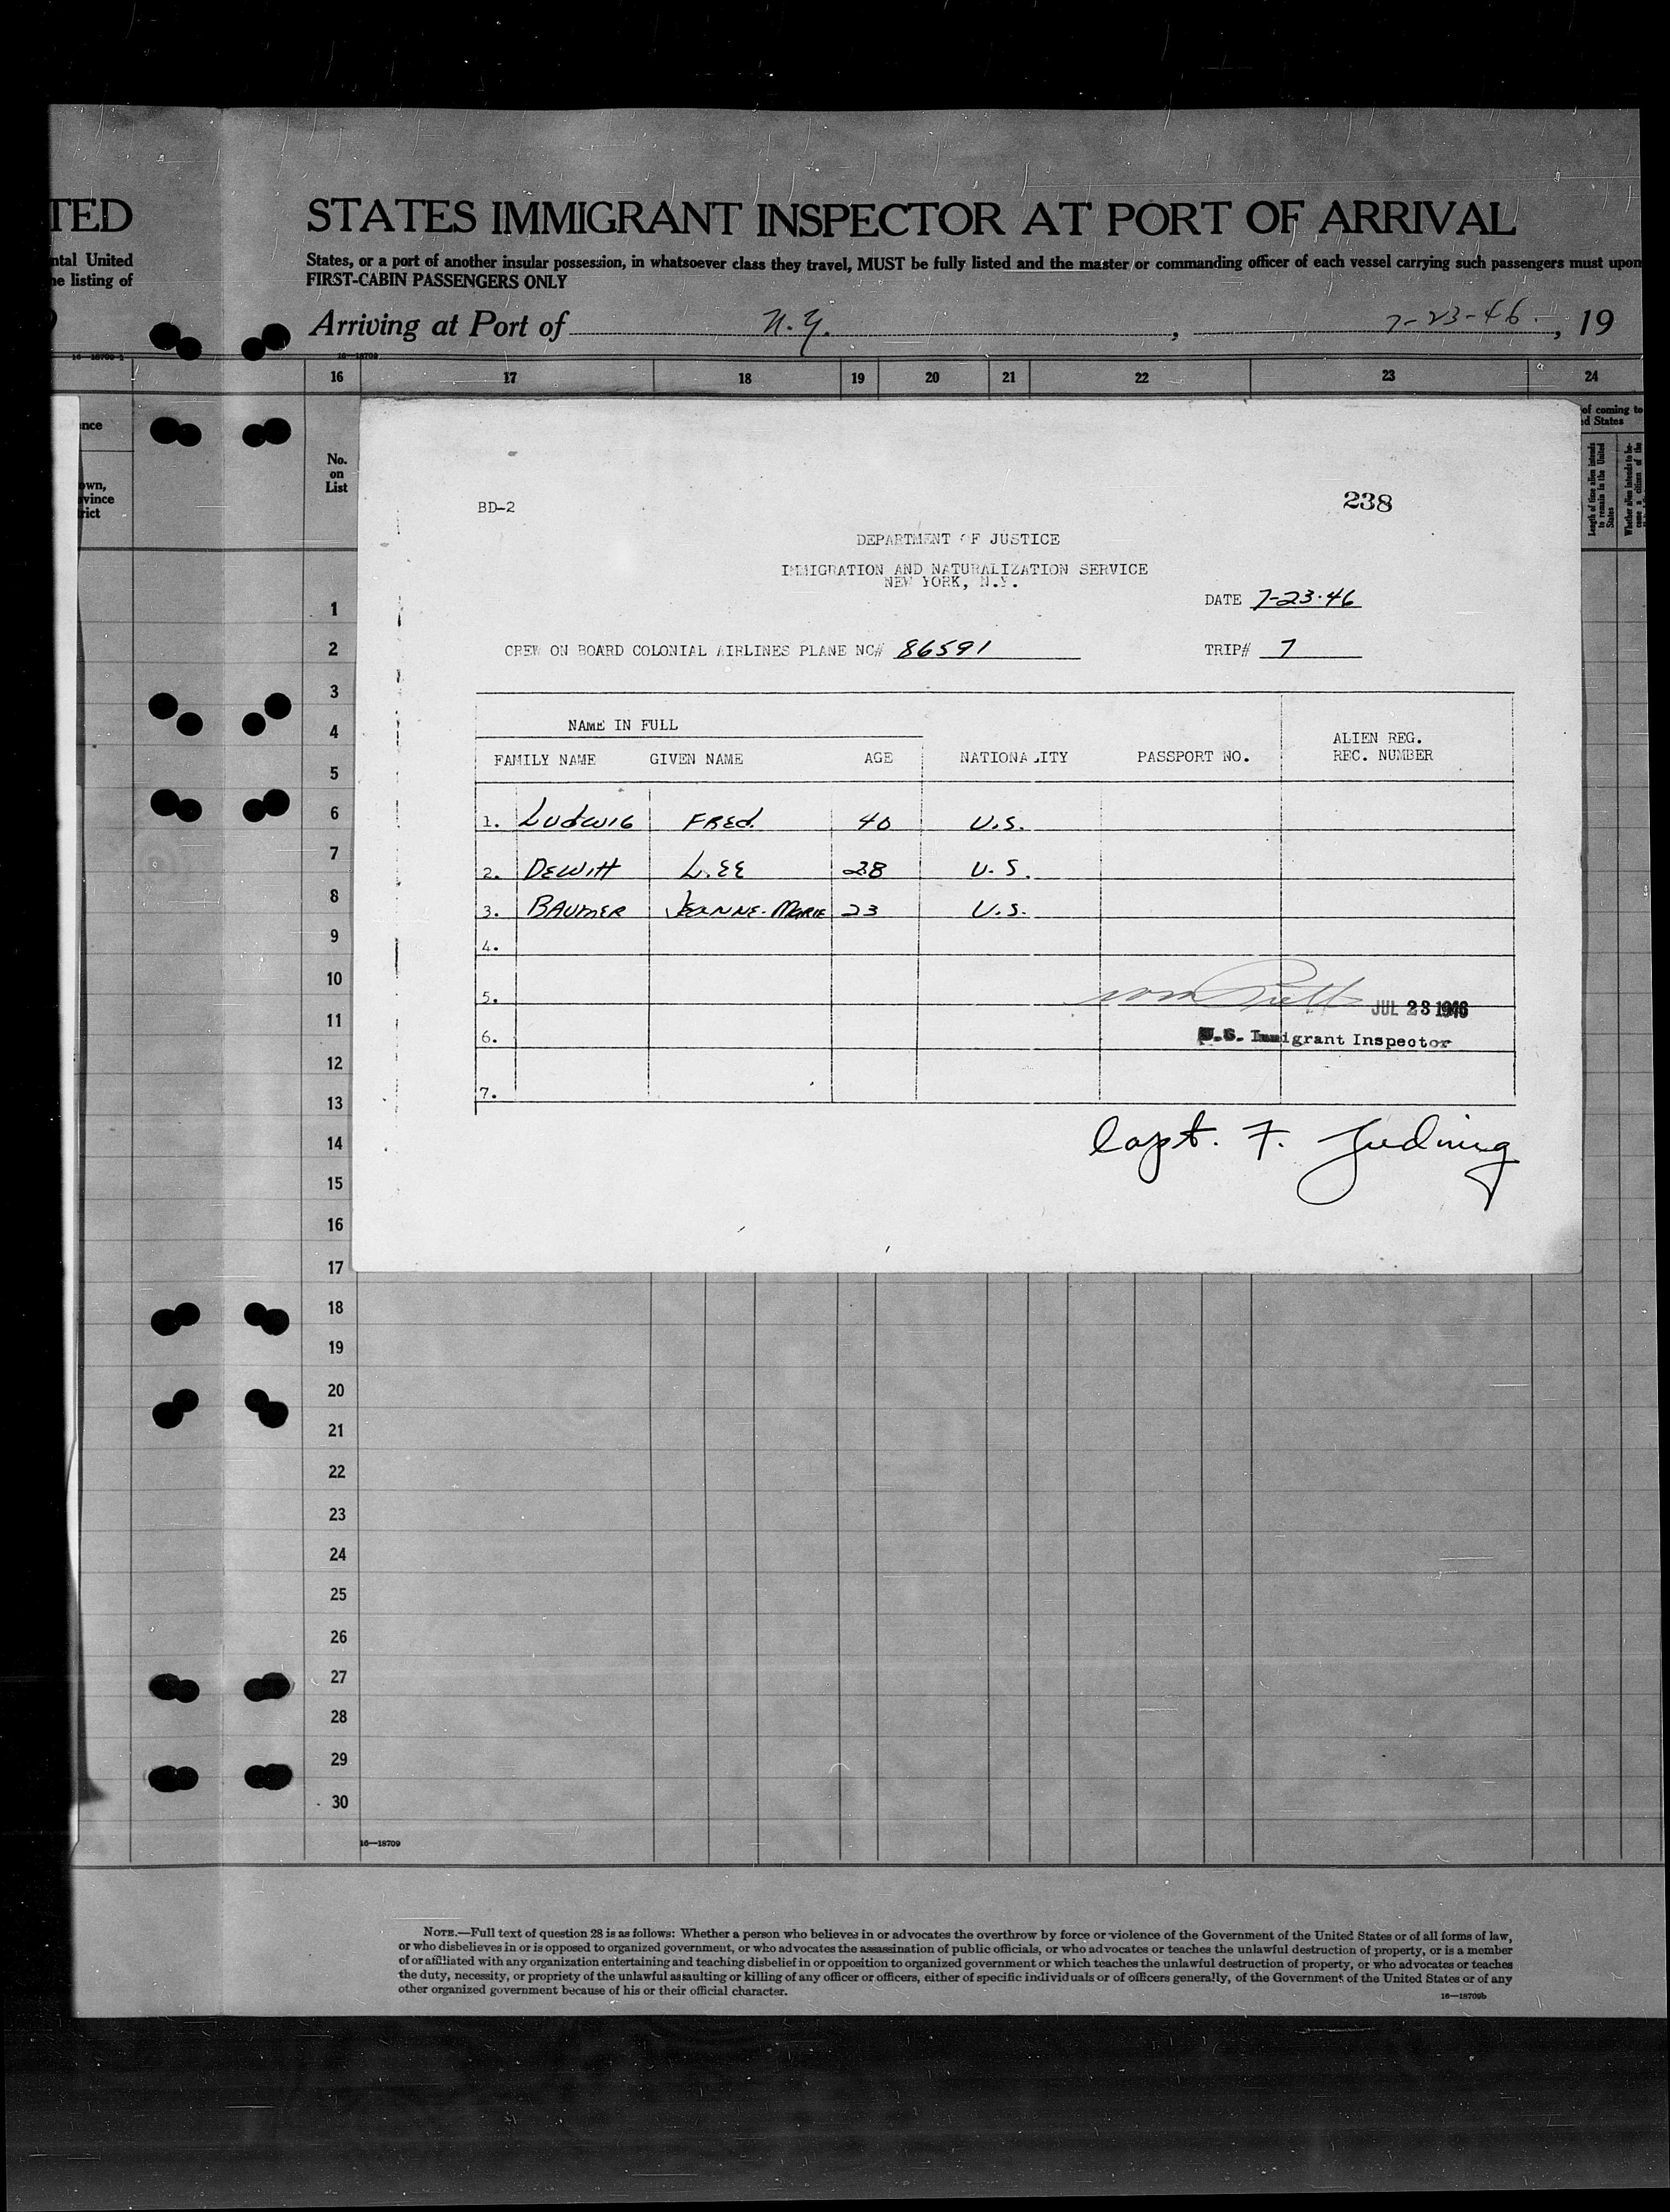 TED
STATES IMMIGRANT INSPECTOR AT PORT OF ARRIVAL
ntal United
States, or a port of another insular possession, in whatsoever class they travel, MUST be fully listed and the master or commanding officer of each vessel carrying such passengers must upon
he listing of
FIRST-CABIN PASSENGERS ONLY
Arriving at Port of N.Y. , 7-23-46 , 19
16—18709-1
16—18709
16 17 18 19 20 21 22 23 24
nce
of coming to
ed States
own,
vince
rict
No.
on
List
Length of time alien intends
to remain in the United
States
Whether alien intends to be-
come a citizen of the
BD-2
238
DEPARTMENT OF JUSTICE
IMMIGRATION AND NATURALIZATION SERVICE
NEW YORK, N.Y.
DATE 7-23-46
CREW ON BOARD COLONIAL AIRLINES PLANE NC# 86591
TRIP# 7
NAME IN FULL
FAMILY NAME GIVEN NAME AGE NATIONALITY PASSPORT NO. ALIEN REG.
REC. NUMBER
1. Ludwig FRed. 40 U.S.
2. DEWitt LEE 28 U.S.
3. BAUMER JEANNE-MARIE 23 U.S.
4.
5.
JUL 23 1946
6.
U.S. Immigrant Inspector
7.
Capt. F. Ludwig
1
2
3
4
5
6
7
8
9
10
11
12
13
14
15
16
17
18
19
20
21
22
23
24
25
26
27
28
29
30
16—18709
NOTE.—Full text of question 28 is as follows: Whether a person who believes in or advocates the overthrow by force or violence of the Government of the United States or of all forms of law,
or who disbelieves in or is opposed to organized government, or who advocates the assassination of public officials, or who advocates or teaches the unlawful destruction of property, or is a member
of or affiliated with any organization entertaining and teaching disbelief in or opposition to organized government or which teaches the unlawful destruction of property, or who advocates or teaches
the duty, necessity, or propriety of the unlawful assaulting or killing of any officer or officers, either of specific individuals or of officers generally, of the Government of the United States or of any
other organized government because of his or their official character.
16—18709b